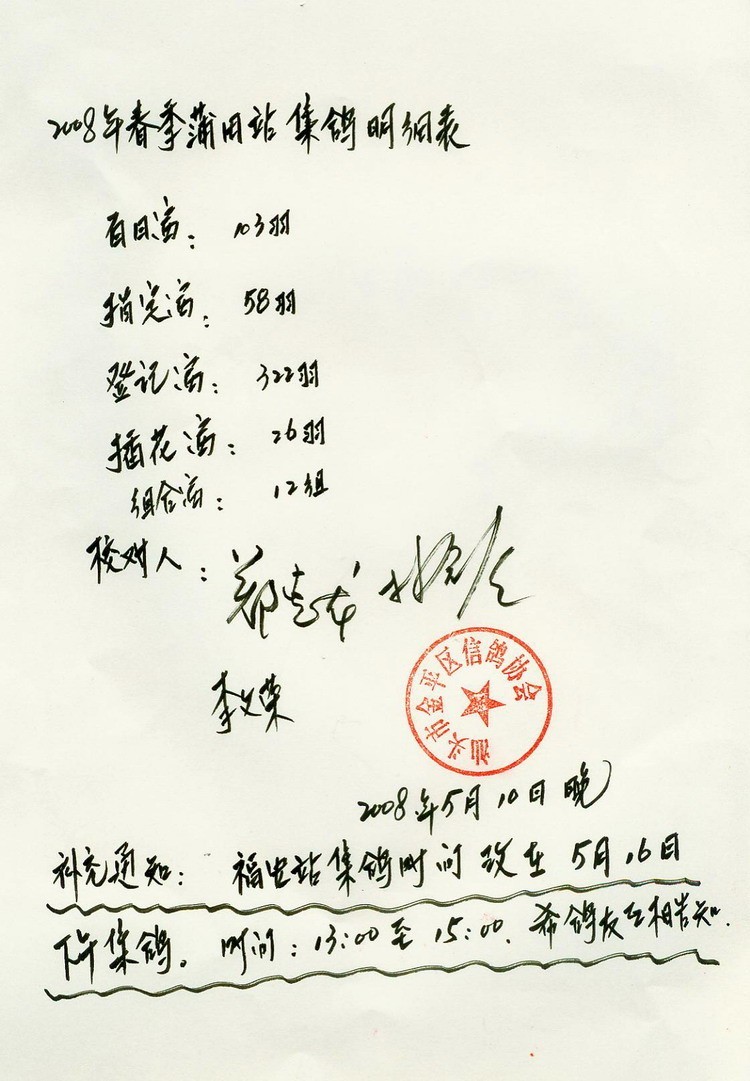 2008年春季蒲田站集鸽明细表
百日赛：103羽
指定赛：58羽
登记赛：322羽
插花赛：26羽
组合赛：12组
校对人：郑
李文荣
汕头市金平区信鸽协会
2008年5月10日晚
补充通知：福安站集鸽时间改在5月16日
下午集鸽。时间：13:00至15:00.希鸽友互相告知.